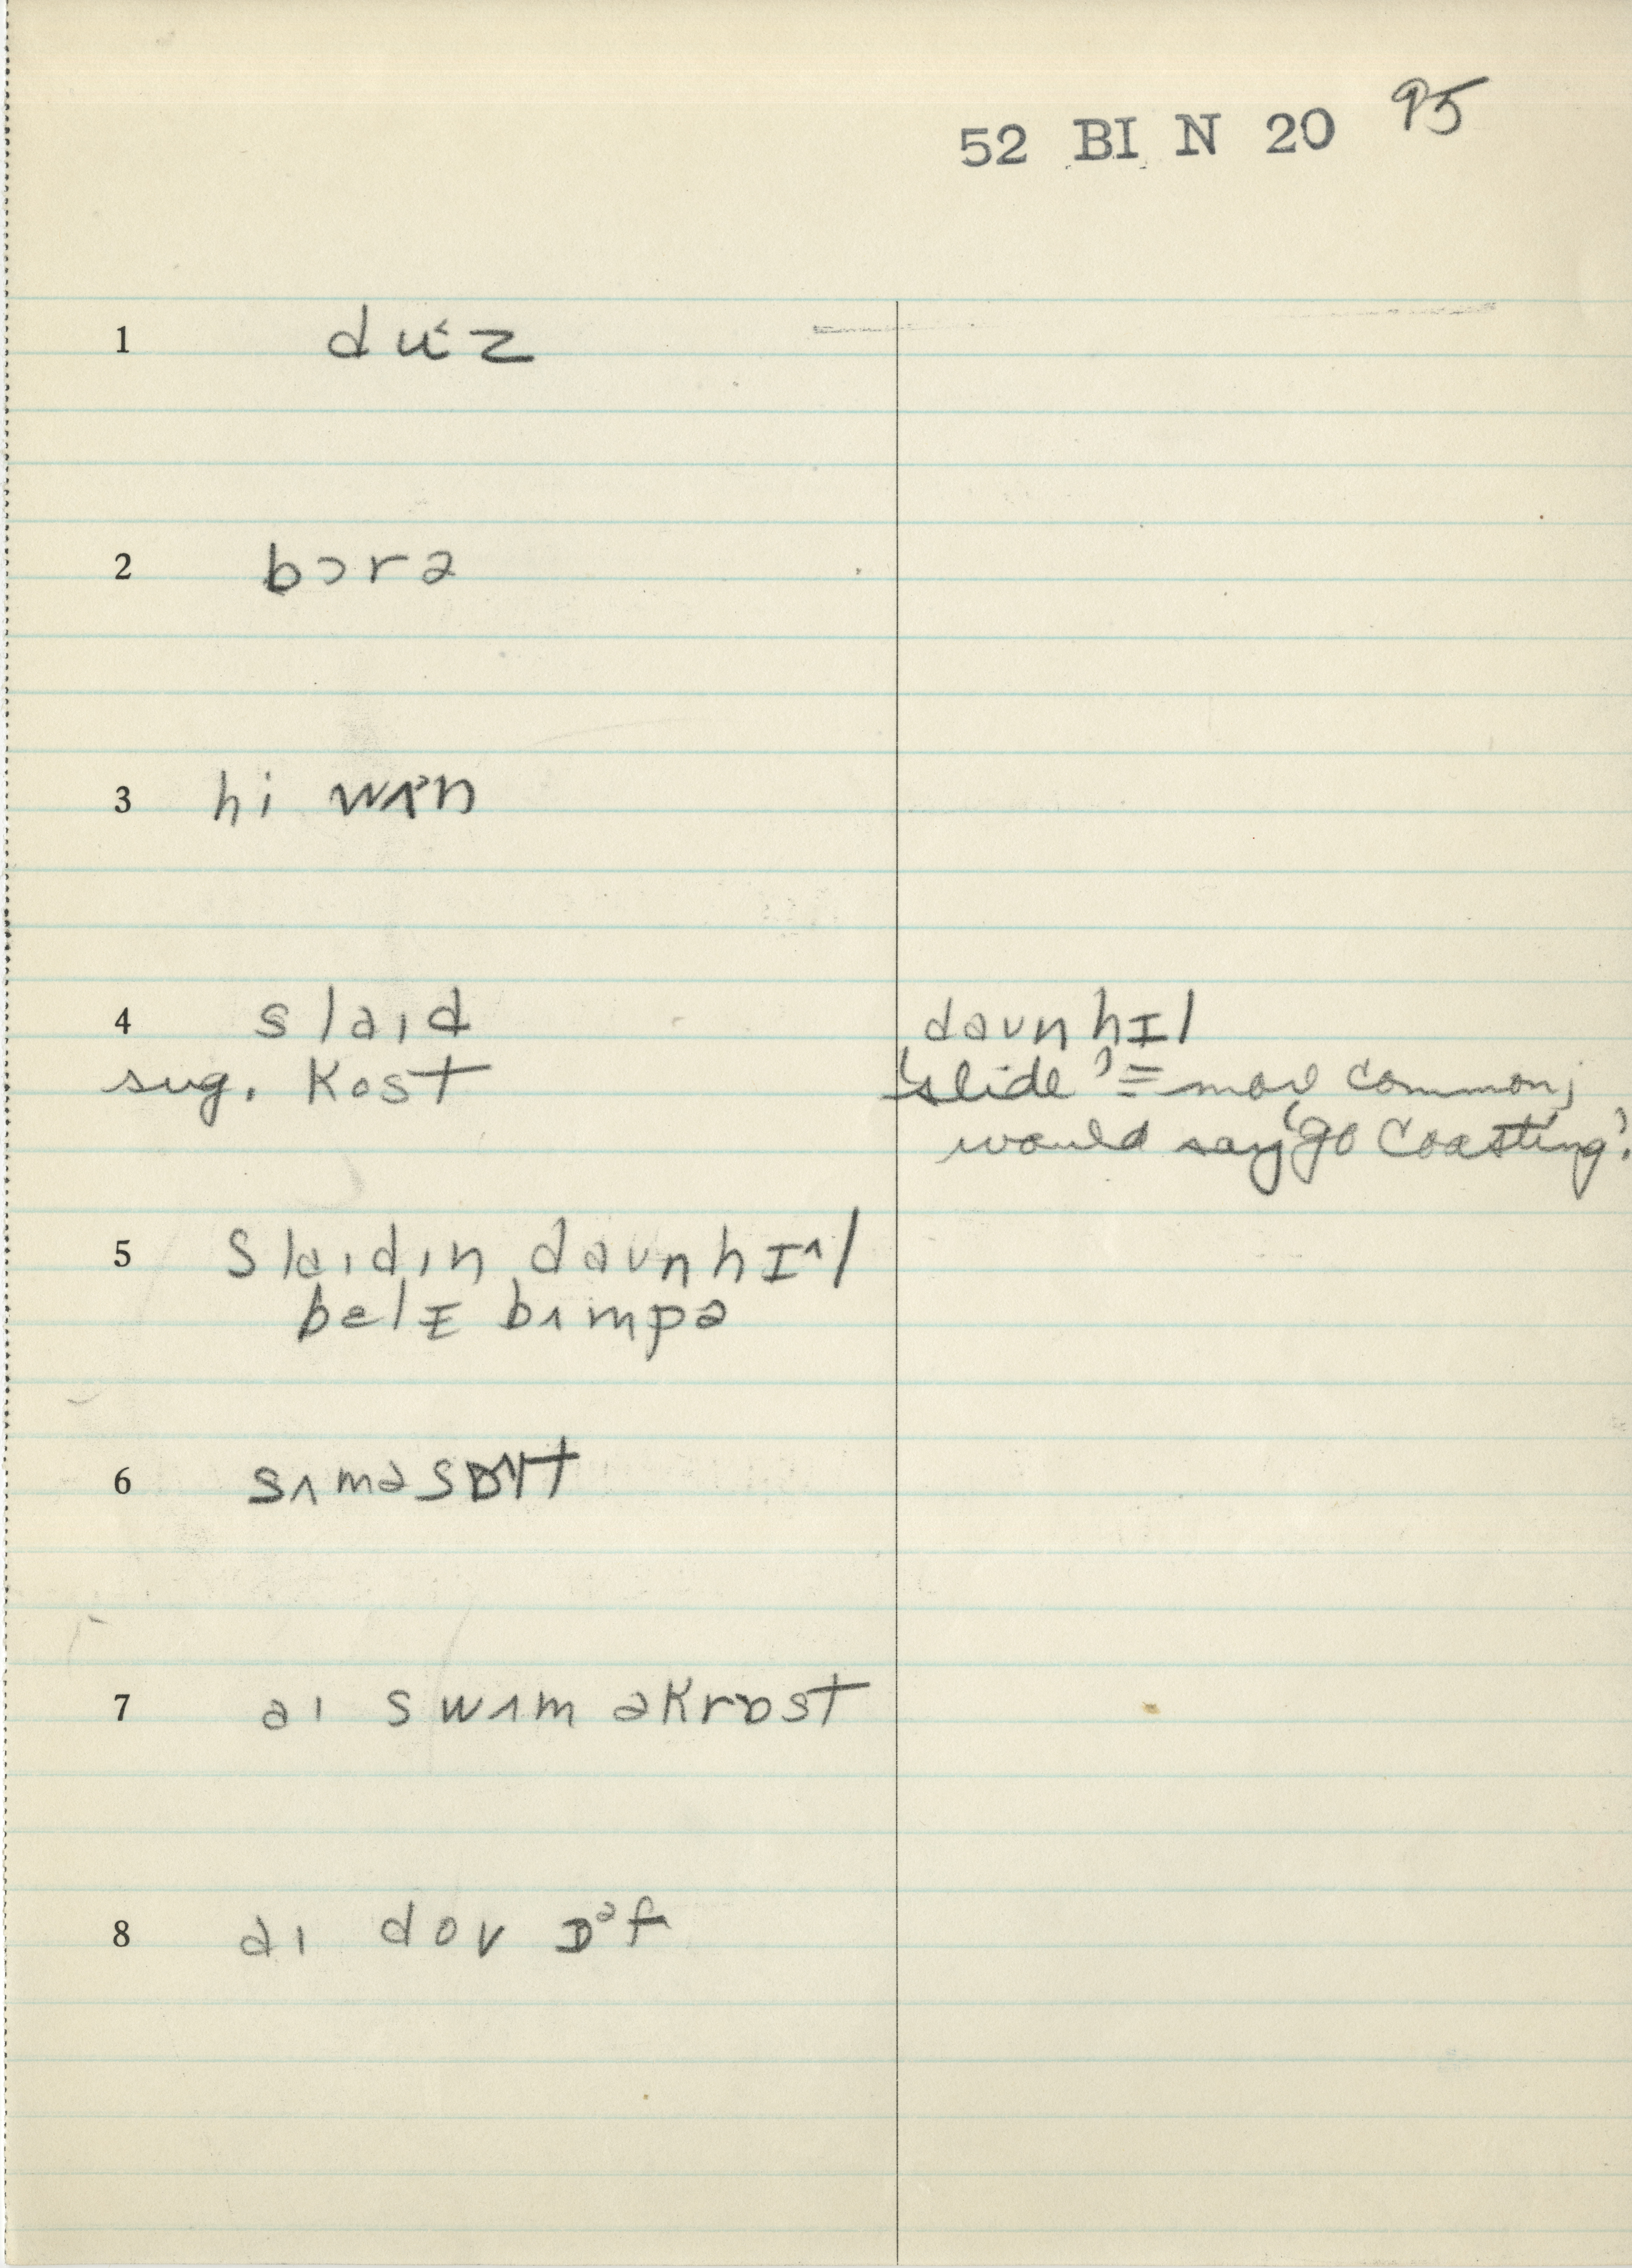 52 BI N 20 95
1 du˂z
2 bɔrə
3 hi wʌn
4 slaɪd
daʊnhɪl
sug. kost
'slide' = more common;
would say 'go coasting'.
5 slaɪdɪn daʊnhɪ^l
belɪ bʌmpə
6 sʌməsɒlt
7 aɪ swʌm əkrɒst
8 aɪ dov ɒᵊf